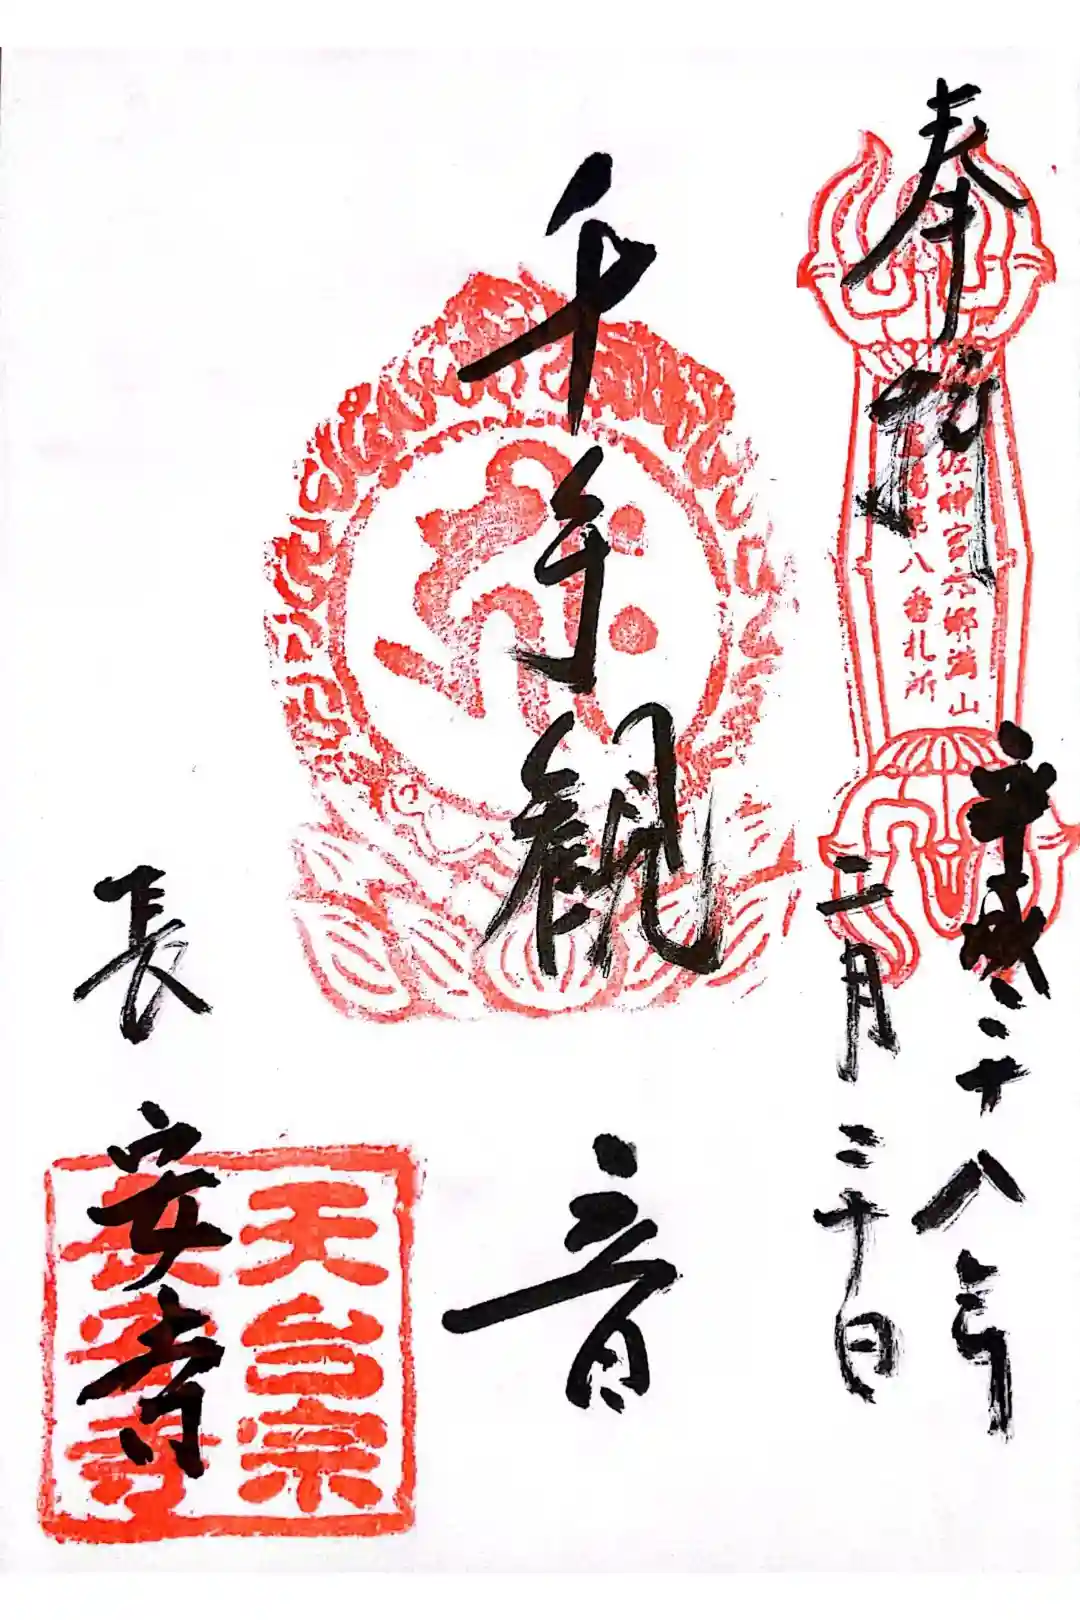 奉拝
佐神宮六郷満山
霊場第八番札所
平成二十八年
二月二十日
千手観音
長安寺
天台宗
長安寺